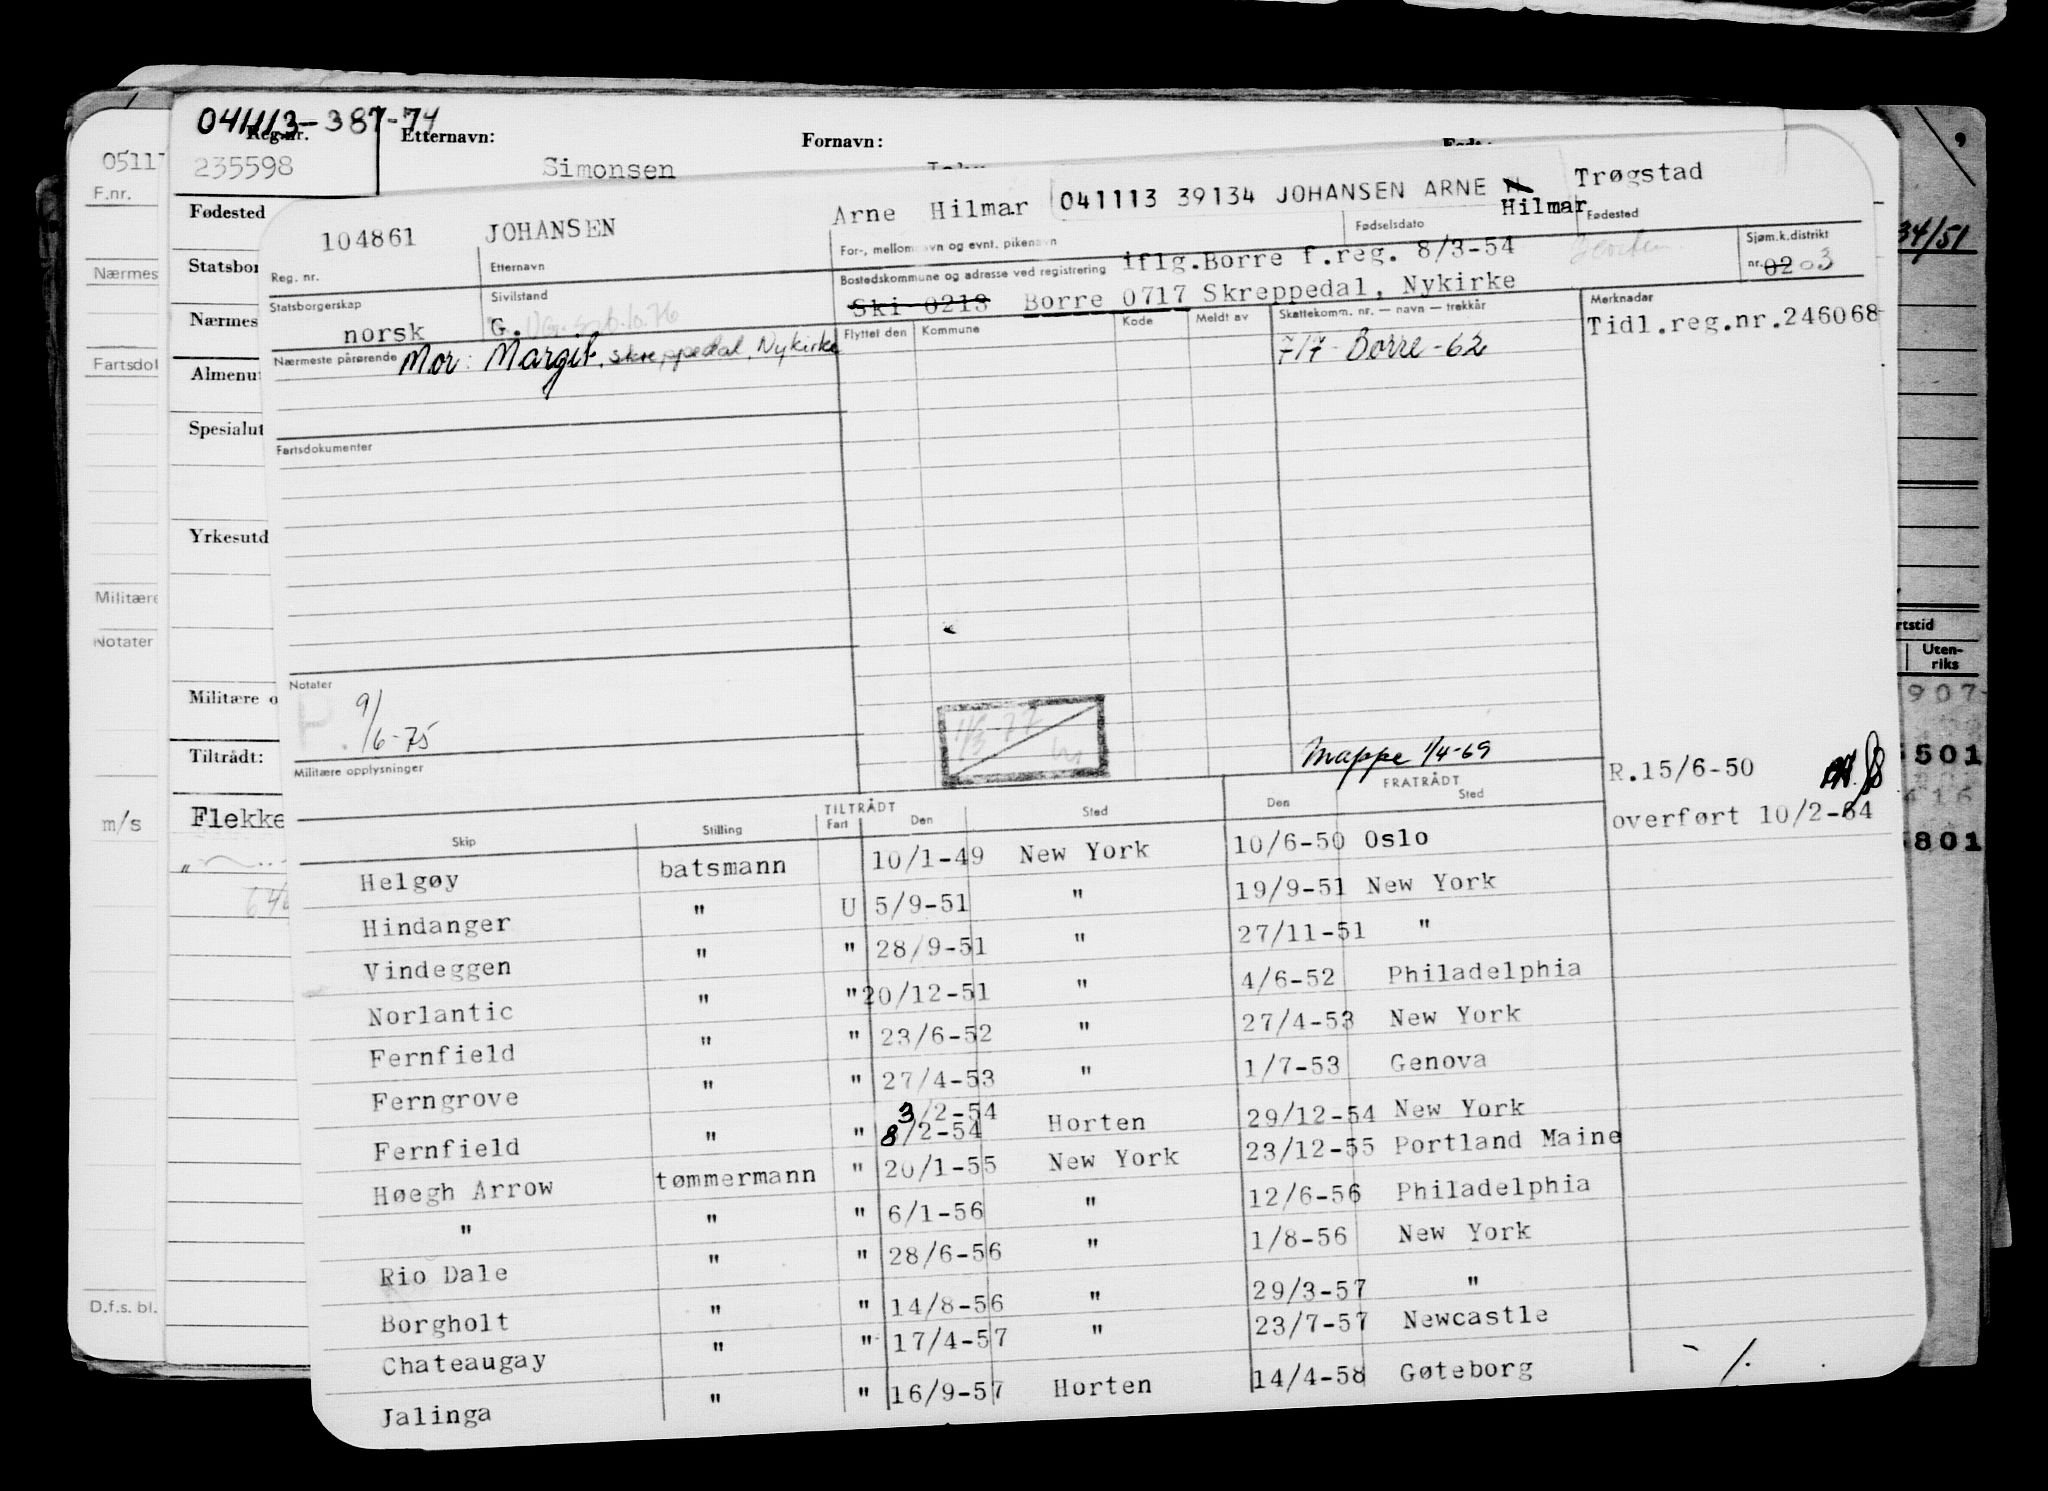 041113-387-74
Reg.nr. Etternavn: Fornavn:
235598 Simonsen
05117
F.nr.
Nærmes
Fartsdol
Militære
Notater
m/s
D.f.s. bl.
Fødested
Statsbor
Nærmes
Almenut
Spesialut
Yrkesutd
Militære o
Tiltrådt:
Flekke
34/51
rtstid
Uten-
riks
907
501
416
801
104861 JOHANSEN Arne Hilmar 041113 39134 JOHANSEN ARNE H Hilmar Trøgstad
Reg. nr. Etternavn For-, mellomnavn og evnt. pikenavn Fødselsdato Fødested
Statsborgerskap Sivilstand Bostedskommune og adresse ved registrering iflg.Borre f.reg. 8/3-54 Sjøm.k.distrikt
nr. 02 03
norsk G. Ski 0213 Borre 0717 Skreppedal, Nykirke
Flyttet den Kommune Kode Meldt av Skattekomm. nr. — navn — trekkår Merknader
Nærmeste pårørende Mor: Margit, Skreppedal, Nykirke 717 Borre -62 Tidl.reg.nr.246068
Fartsdokumenter
Notater
9/6-75
11/3-77
Militære opplysninger
Mappe 1/4-69
R.15/6-50
overført 10/2-64
TILTRÅDT FRATRÅDT
Skip Stilling Fart Den Sted Den Sted
Helgøy batsmann 10/1-49 New York 10/6-50 Oslo
Hindanger " U 5/9-51 " 19/9-51 New York
Vindeggen " " 28/9-51 " 27/11-51 "
Norlantic " " 20/12-51 " 4/6-52 Philadelphia
Fernfield " " 23/6-52 " 27/4-53 New York
Ferngrove " " 27/4-53 " 1/7-53 Genova
3/2-54
Fernfield " " 8/2-54 Horten 29/12-54 New York
Høegh Arrow tømmermann " 20/1-55 New York 23/12-55 Portland Maine
" " " 6/1-56 " 12/6-56 Philadelphia
Rio Dale " " 28/6-56 " 1/8-56 New York
Borgholt " " 14/8-56 " 29/3-57 "
Chateaugay " " 17/4-57 " 23/7-57 Newcastle
Jalinga " " 16/9-57 Horten 14/4-58 Gøteborg